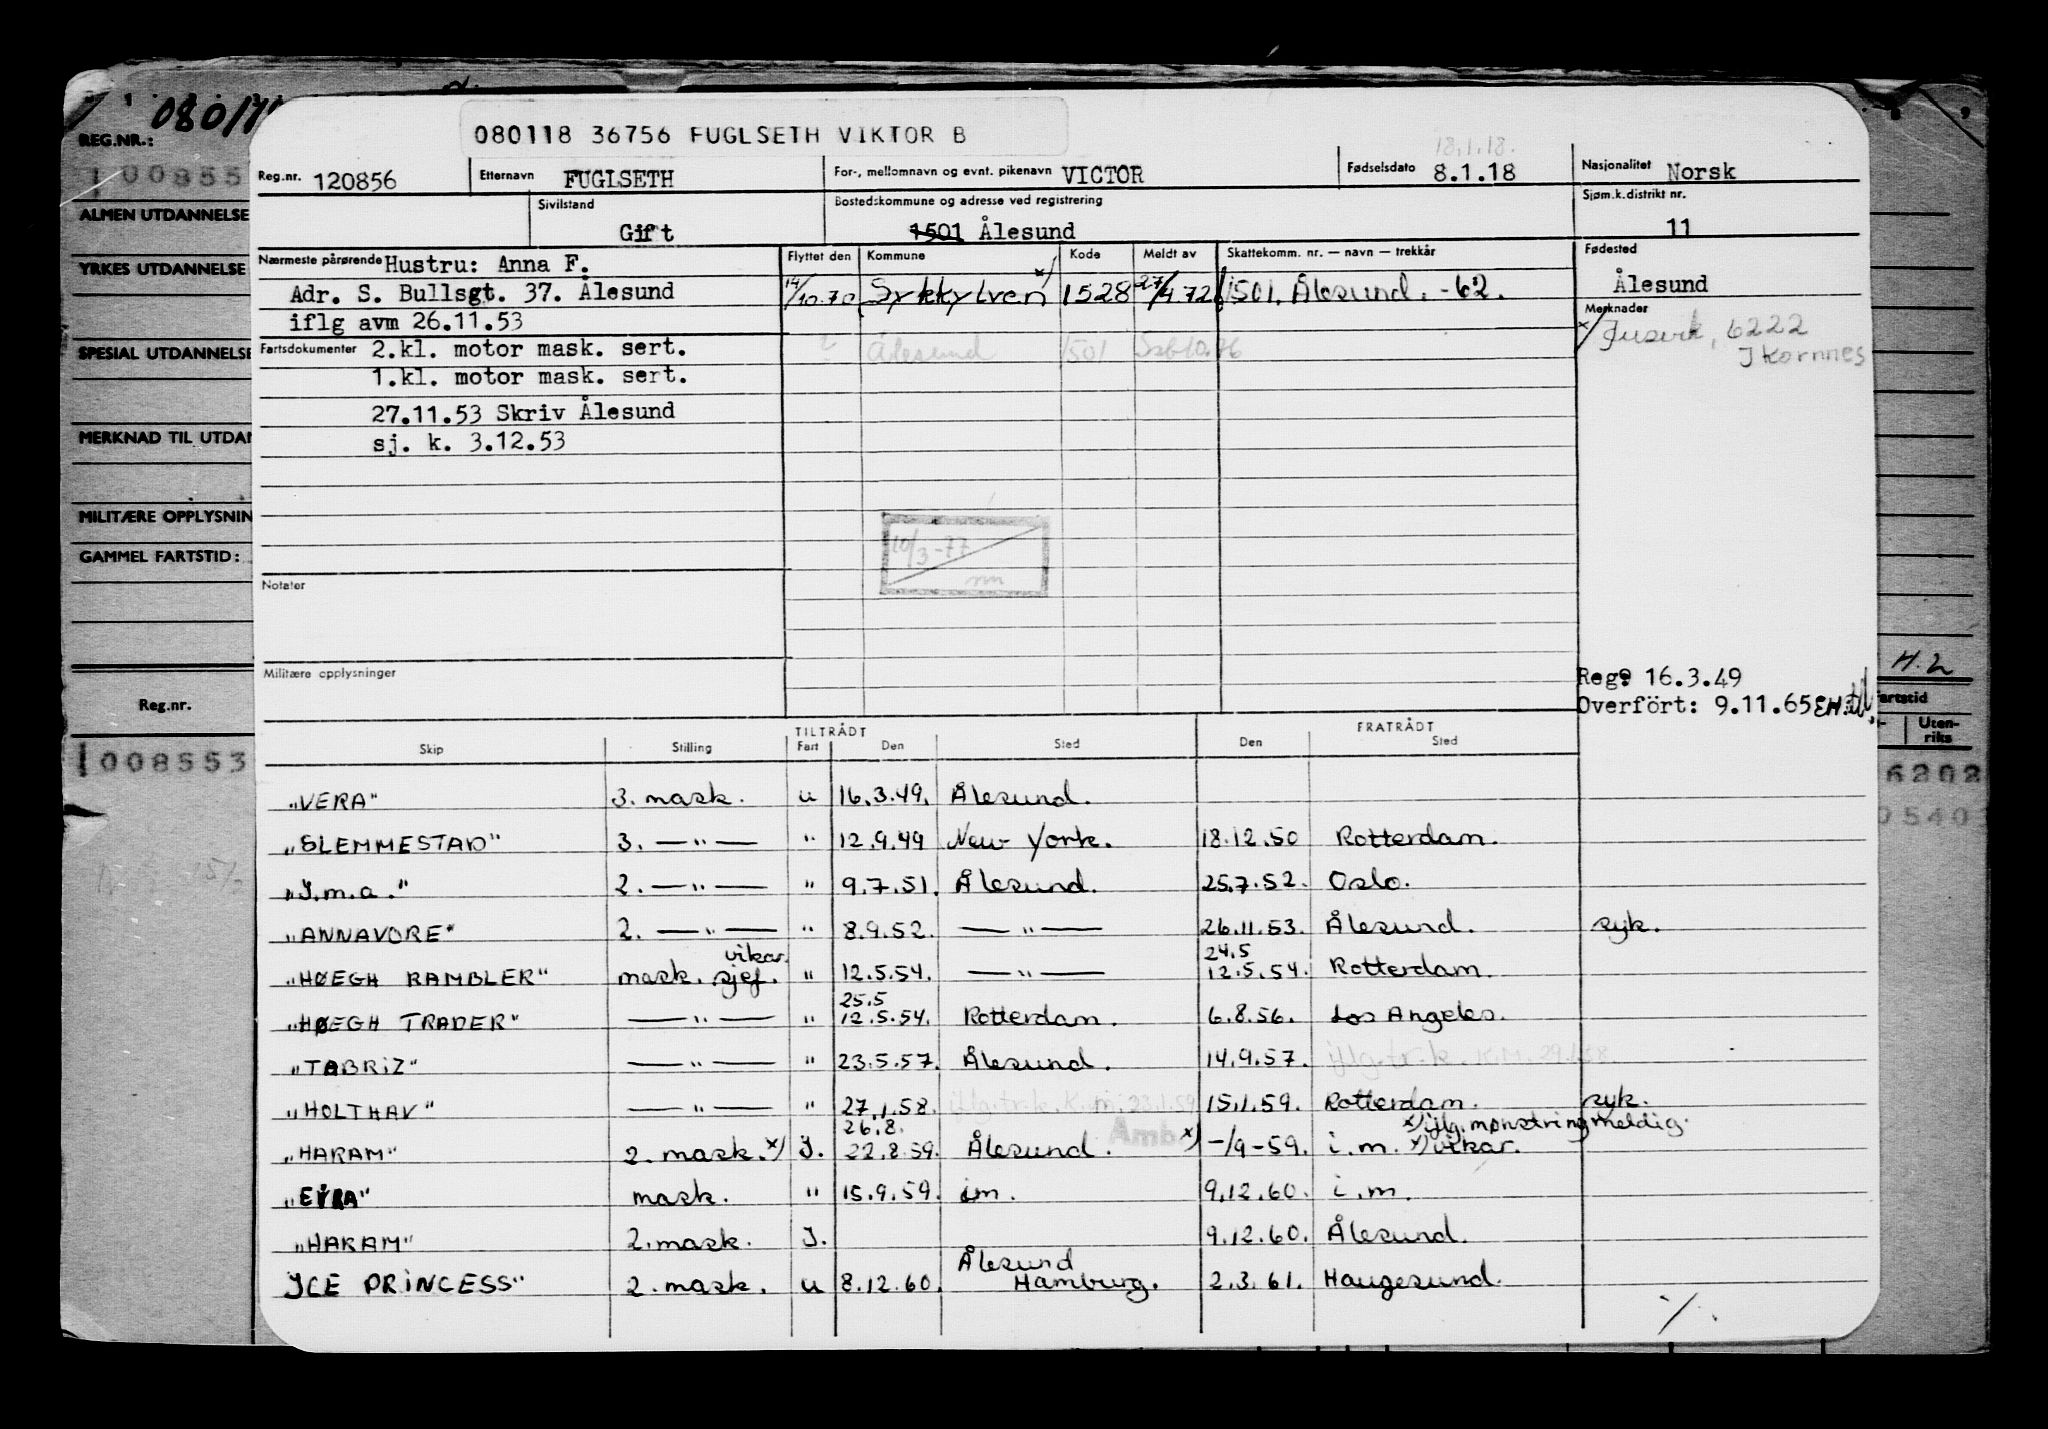 REG.NR.:
ALMEN UTDANNELSE
YRKES UTDANNELSE
SPESIAL UTDANNELSE
MERKNAD TIL UTDAN
MILITÆRE OPPLYSNIN
GAMMEL FARTSTID:
Reg.nr.
1008553
080118 36756 FUGLSETH VIKTOR B
18.1.18.
Reg.nr. 120856 Etternavn FUGLSETH For-, mellomnavn og evnt. pikenavn VICTOR Fødselsdato 8.1.18 Nasjonalitet Norsk
Sivilstand Gift Bostedskommune og adresse ved registrering 1501 Ålesund Sjøm.k.distrikt nr. 11
Nærmeste pårørende Hustru: Anna F. Flyttet den Kommune Kode Meldt av Skattekomm. nr. — navn — trekkår Fødested
Adr. S. Bullsgt. 37. Ålesund 14/10.70 Sykkylven x) 1528 27/4.72 1501. Ålesund. -62. Ålesund
iflg avm 26.11.53 Merknader
Fartsdokumenter 2.kl. motor mask. sert. Ålesund 1501 x/ Jusvik, 6222
1.kl. motor mask. sert. Ikornnes
27.11.53 Skriv Ålesund
sj. k. 3.12.53
10/3-77
Notater
Militære opplysninger
Reg. 16.3.49
Overført: 9.11.65
H.2
Fartstid
Uten-
riks
6202
0540
TILTRÅDT FRATRÅDT
Skip Stilling Fart Den Sted Den Sted
"VERA" 3. mask. u 16.3.49. Ålesund.
"SLEMMESTAD" 3. — " — " 12.9.49 New York. 18.12.50 Rotterdam.
"I.m.a." 2. — " — " 9.7.51. Ålesund. 25.7.52. Oslo.
"ANNAVORE" 2. — " — " 8.9.52. — " — 26.11.53. Ålesund. syk.
vikar. 24.5
"HØEGH RAMBLER" mask. sjef. " 12.5.54. — " — 12.5.54. Rotterdam.
25.5
"HØEGH TRADER" — " — " 12.5.54. Rotterdam. 6.8.56. Los Angeles.
"TABRIZ" — " — " 23.5.57. Ålesund. 14.9.57. iflg.tr.k. K.M. 29.1.58.
"HOLTHAV" — " — " 27.1.58. iflg.tr.k. K.m. 23.1.59 15.1.59. Rotterdam. syk.
26.8. x) iflg. mønstringmeldig.
"HARAM" 2. mask. x) I. 22.8.59. Ålesund. x) -/9-59. i.m. x) vikar.
"EIRA" mask. " 15.9.59. im. 9.12.60. i.m.
"HARAM" 2. mask. I. 9.12.60. Ålesund.
Ålesund
ICE PRINCESS" 2. mask. u 8.12.60. Hamburg. 2.3.61. Haugesund.